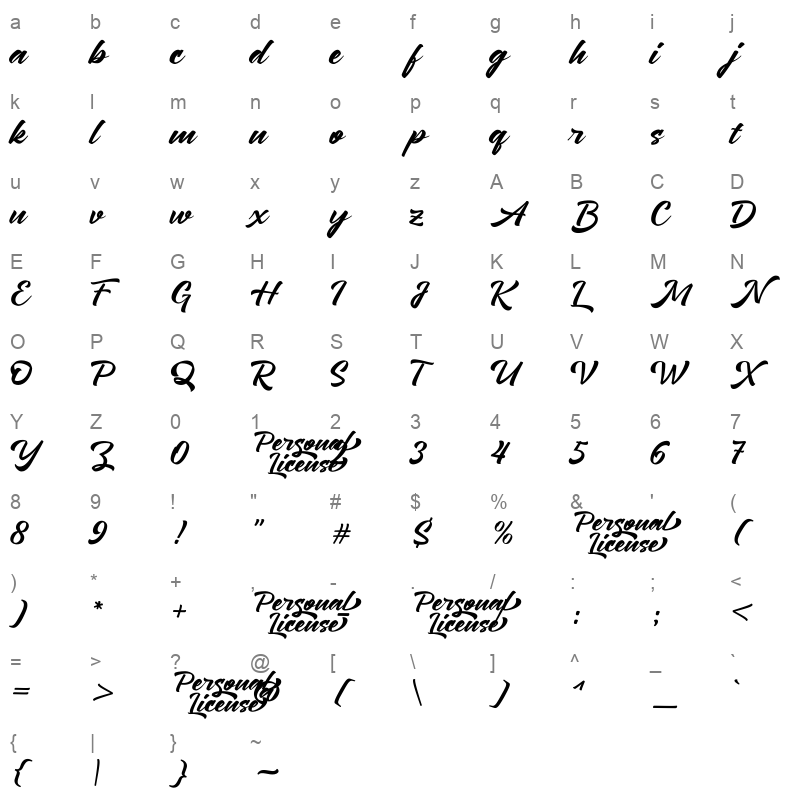 a b c d e f g h i j
a b c d e f g h i j
k l m n o p q r s t
k l m n o p q r s t
u v w x y z A B C D
u v w x y z A B C D
E F G H I J K L M N
E F G H I J K L M N
O P Q R S T U V W X
O P Q R S T U V W X
Y Z 0 1 2 3 4 5 6 7
Y Z 0 Personal 2 3 4 5 6 7
License
8 9 ! " # $ % & ' (
8 9 ! " # $ % Personal ' (
License
) * + , - . / : ; <
) * + Personal - Personal / : ; <
License License
= > ? @ [ \ ] ^ _ `
= > Personal @ [ \ ] ^ _ `
License
{ | } ~
{ | } ~